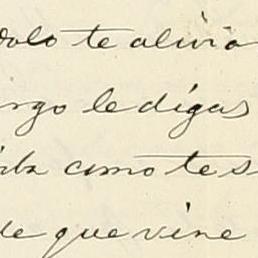 dolo te alivia
rgo le digas
como te s
de que vine